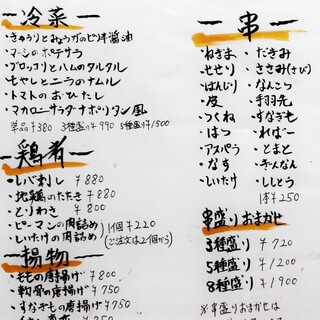 冷菜
・きゅうりとみょうがのピリ辛醤油
・マーシのポテサラ
・ブロッコリとハムのタルタル
・もやしとニラのナムル
・トマトのおひたし
・マカロニサラダナポリタン風
単品¥380 3種盛り¥990 5種盛り¥1500
鶏肴
・レバ刺し ¥880
・地鶏のたたき ¥880
・とりわさ ¥800
・ピーマンの肉詰め 1個¥220
・しいたけの肉詰め (ご注文は2個から)
揚物
・ももの唐揚げ ¥800
・軟骨の唐揚げ ¥750
・すなぎもの唐揚げ ¥750
串
・ねぎま ・だきみ
・せせり ・ささみ(さび)
・ぼんじり ・なんこつ
・皮 ・手羽先
・つくね ・すなぎも
・はつ ・ればー
・アスパラ ・とまと
・なす ・ぎんなん
・しいたけ ・ししとう
串盛りおまかせ
3種盛り ¥720
5種盛り ¥1200
8種盛り ¥1900
※串盛りおまかせは